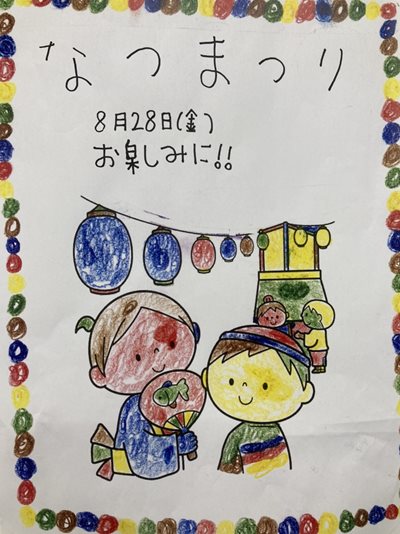 なつまつり
8月28日(金)
お楽しみに!!